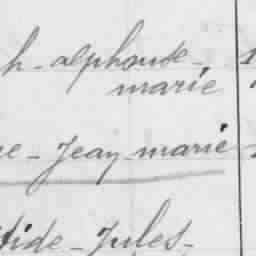 h - alphonse -
marie
re - Jean marie
tide - Jules -